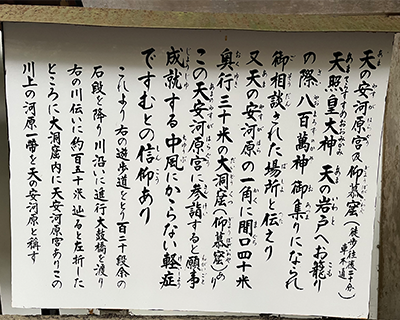 天の安河原宮及仰慕窟(徒歩往復三十分車不通)
天照皇大神 天の岩戸へお籠り
の際 八百萬神御集りになられ
御相談された場所と伝えり
又天の安河原の一角に間口四十米
奥行三十米の大洞窟(仰慕窟)あり
この天安河原宮に参詣すると願事
成就する中風にかからない軽症
ですむとの信仰あり
これより右の遊歩道をとり百二十段余の
石段を降り川沿いに進行太鼓橋を渡り
右の川伝いに約百五十米辿ると左折した
ところに大洞窟内に天安河原宮ありこの
川上の河原一帯を天の安河原と稱す